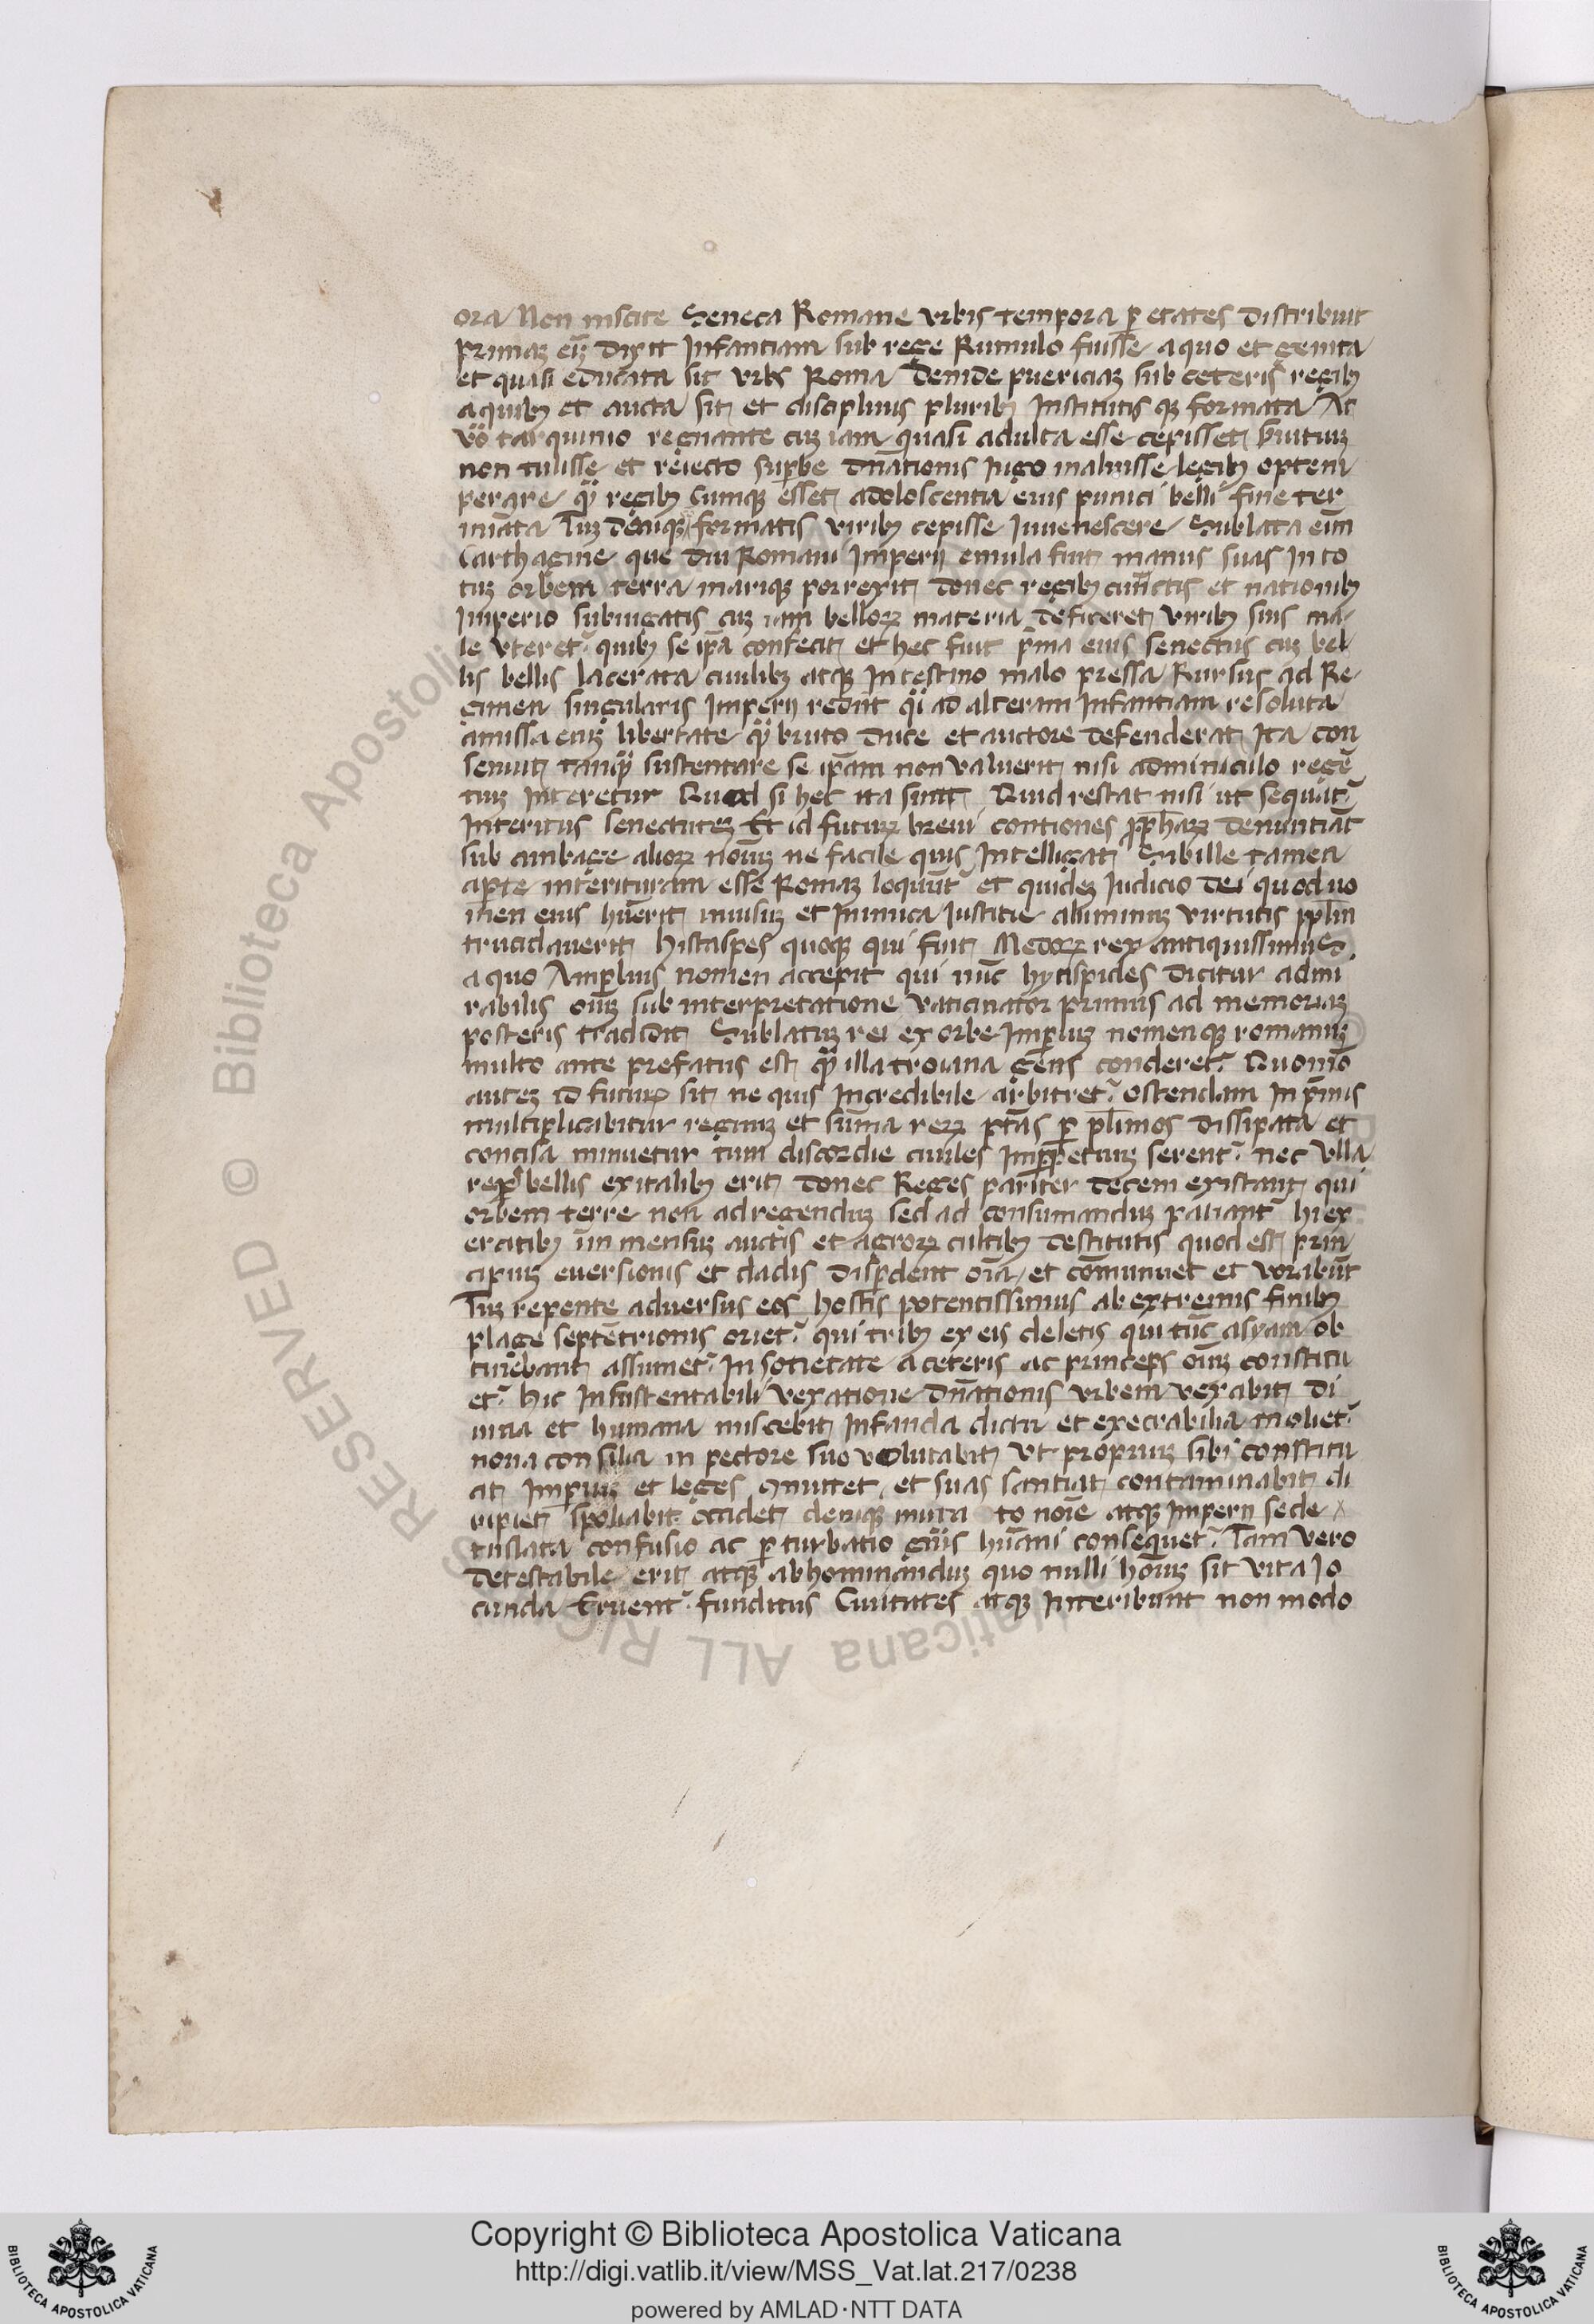 ora Non inscite Seneca Romane urbis tempora p̲ etates distribuit
primaȝ eīȝ dixit Infantiam sub rege Rumulo fuisse a quo et genita
et quasi educata sit urbs Roma Deinde puericiaȝ sub ceteris regibꝫ
a quibꝫ et aucta sit et disciplinis pluribꝫ Institutis qꝫ formata At
vͦo tarquinio regnante cuȝ iam quasi adulta esse cepisset
non tulisse et reiecto suꝑbe dn̄ationis Jugo maluisse legibꝫ optem
perare qͣꝫ regibꝫ Cumqꝫ esset adoloscentia eius punici belli fine ter
minata Tuȝ deniqꝫ formatis viribꝫ cepisse Juvenescere Sublata eīm
Carthagine que diu Romani Imperij emula fuit manus suas In to
tuȝ orbem terra mariqꝫ porrexit donec regibꝫ cunctis et nationibꝫ
Imperio subiugatis cuȝ iam belloꝝ materia deficeret viribꝫ suis ma
le uteret᷑ quibꝫ se ip̄a confecit et hec fuit p̄ma eius senectus cuȝ bel
lis bellis lacerata civilibꝫ atqꝫ Intestino malo pressa Rursus ad Re
gimen singularis Imperij redijt qͣi ad alteram Infantiam resoluta
amissa eniȝ libertate qͣꝫ bruto duce et auctore defenderat Ita con
senuit tanqͣꝫ sustentare se ip̄am non valuerit nisi adminiculo regē
tuȝ Interetur Quod si hec ita sunt Quid restat nisi ut sequat᷑
Interitus senectuteȝ Et id futuꝝ brevi contiones ꝓph̄aꝝ denuntiāt
sub ambage alioꝝ noīuȝ ne facile quis Intelligat Sibille tamen
aꝑte interituram esse Romaȝ loquūt᷑ et quideȝ Iudicio dei quod no
men eius hūerit invisuȝ et Inimica Iustitie alumnuȝ virtutis ppl̄m
trucidaverit Histaspes quoqꝫ qui fuit Medoꝝ rex antiquissimus
a quo Amp̲luis nomen accepit qui nūc hytispides dicitur admi
rabilis oīuȝ sub interpretatione vaticinator primus ad memoriaȝ
posteris tradidit Sublatuȝ rei ex orbe Imꝑiuȝ nomenqꝫ romanuȝ
multo ante prefatus est qͣꝫ illa troiana gens conderet᷑ Quomō
auteȝ id futuꝝ sit ne quis Incredibile arbitret᷑ ostendam In p̄mis
multiplicabitur regnuȝ et sūma reꝝ ptās ꝑ pl̄imos dissipata et
concisa minuetur tum discordie civiles Imꝑpetuuȝ serent᷑ nec ulla
bellis exitalibꝫ erit donec Reges pariter decem existant qui
orbem terre non ad regenduȝ sed ad consumanduȝ partiant᷑ hi ex
ercitibꝫ un mensuȝ auctis et agroꝝ cultibꝫ destitutis quod est prin
cipiuȝ eversionis et cladis disꝑdent oīa et cōmunuet et vorabūt
Tuȝ repente adversus eos hostis potentissimus ab extremis finibꝫ
plage septētrionis oriet᷑ qui tribꝫ ex eis deletis qui tūc asyam ob
tinebant assumet᷑ In sotietate a ceteris ac princeps oīuȝ constitu
et᷑ hic Insustentabili vexatione dn̄ationis urbem vexabit Di
vina et humana miscebit Infanda dictu et execrabilia moliet᷑
nova consilia in pectore suo volutabit ut propriuȝ sibi constitu
at Imꝑiuȝ et leges ꝯmutet et suas santiat contaminabit di
ripiet spoliabit occidet deniqꝫ muta to noīe atqꝫ Imperij sede
tuslata confusio ac ꝑturbatio gn̄is hūani consequet᷑ Tam vero
detestabile erit atqꝫ abhominanduȝ quo nulli hoīuȝ sit vita Jo
cunda Eruent᷑ funditus Civitates atqꝫ Interibunt non modo
RESERVED © Biblioteca Apostolica Vaticana ALL RIGHTS
Copyright © Biblioteca Apostolica Vaticana
http://digi.vatlib.it/view/MSS_Vat.lat.217/0238
powered by AMLAD·NTT DATA
BIBLIOTECA APOSTOLICA VATICANA
BIBLIOTECA APOSTOLICA VATICANA